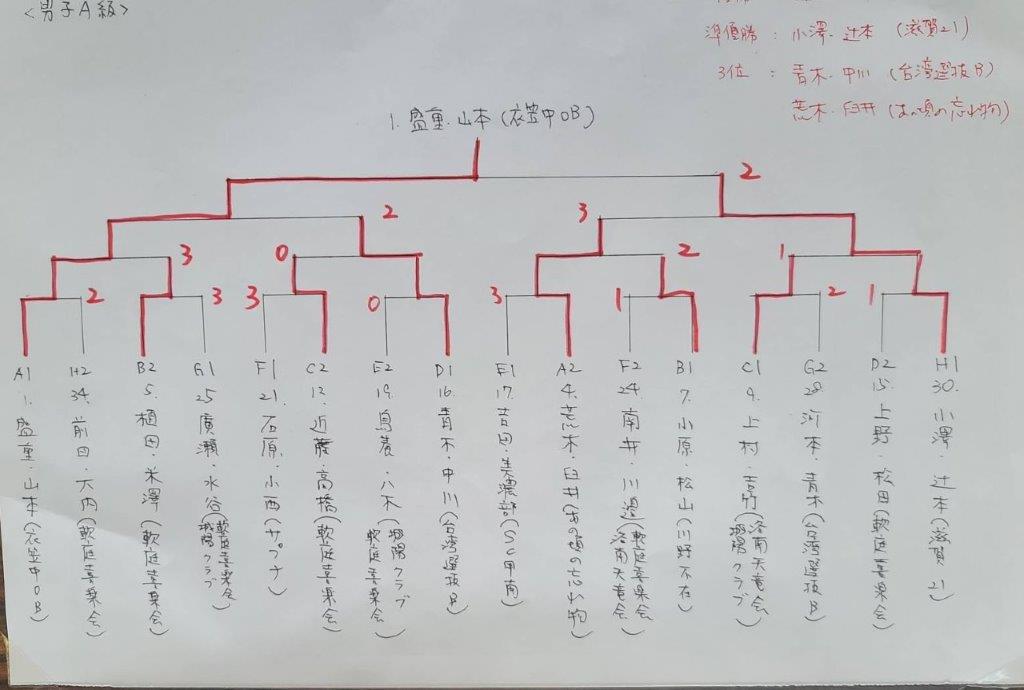 <男子A級>
準優勝 : 小澤・辻本 (滋賀21)
3位 : 青木・中川 (台湾選抜B)
荒木・臼井 (あの頃の忘れ物)
1. 盛重・山本 (衣笠中OB)
2
2
3
3
0
2
1
2
3
3
0
3
1
2
1
A1 1. 盛重・山本 (衣笠中OB)
H2 34. 前田・大内 (軟庭喜楽会)
B2 5. 植田・米澤 (軟庭喜楽会)
G1 25. 廣瀬・水谷 (軟庭喜楽会 城陽クラブ)
F1 21. 石原・小西 (サプナ)
C2 12. 近藤・高橋 (軟庭喜楽会)
E2 19. 鳥養・八木 (城陽クラブ 軟庭喜楽会)
D1 16. 青木・中川 (台湾選抜B)
E1 17. 吉田・美濃部 (SC甲南)
A2 4. 荒木・臼井 (あの頃の忘れ物)
F2 24. 南井・川邉 (軟庭喜楽会 洛南天竜会)
B1 7. 小原・松山 (川野不在)
C1 9. 上村・吉竹 (洛南天竜会 城陽クラブ)
G2 28. 河本・青木 (台湾選抜B)
D2 15. 上野・松田 (軟庭喜楽会)
H1 30. 小澤・辻本 (滋賀21)